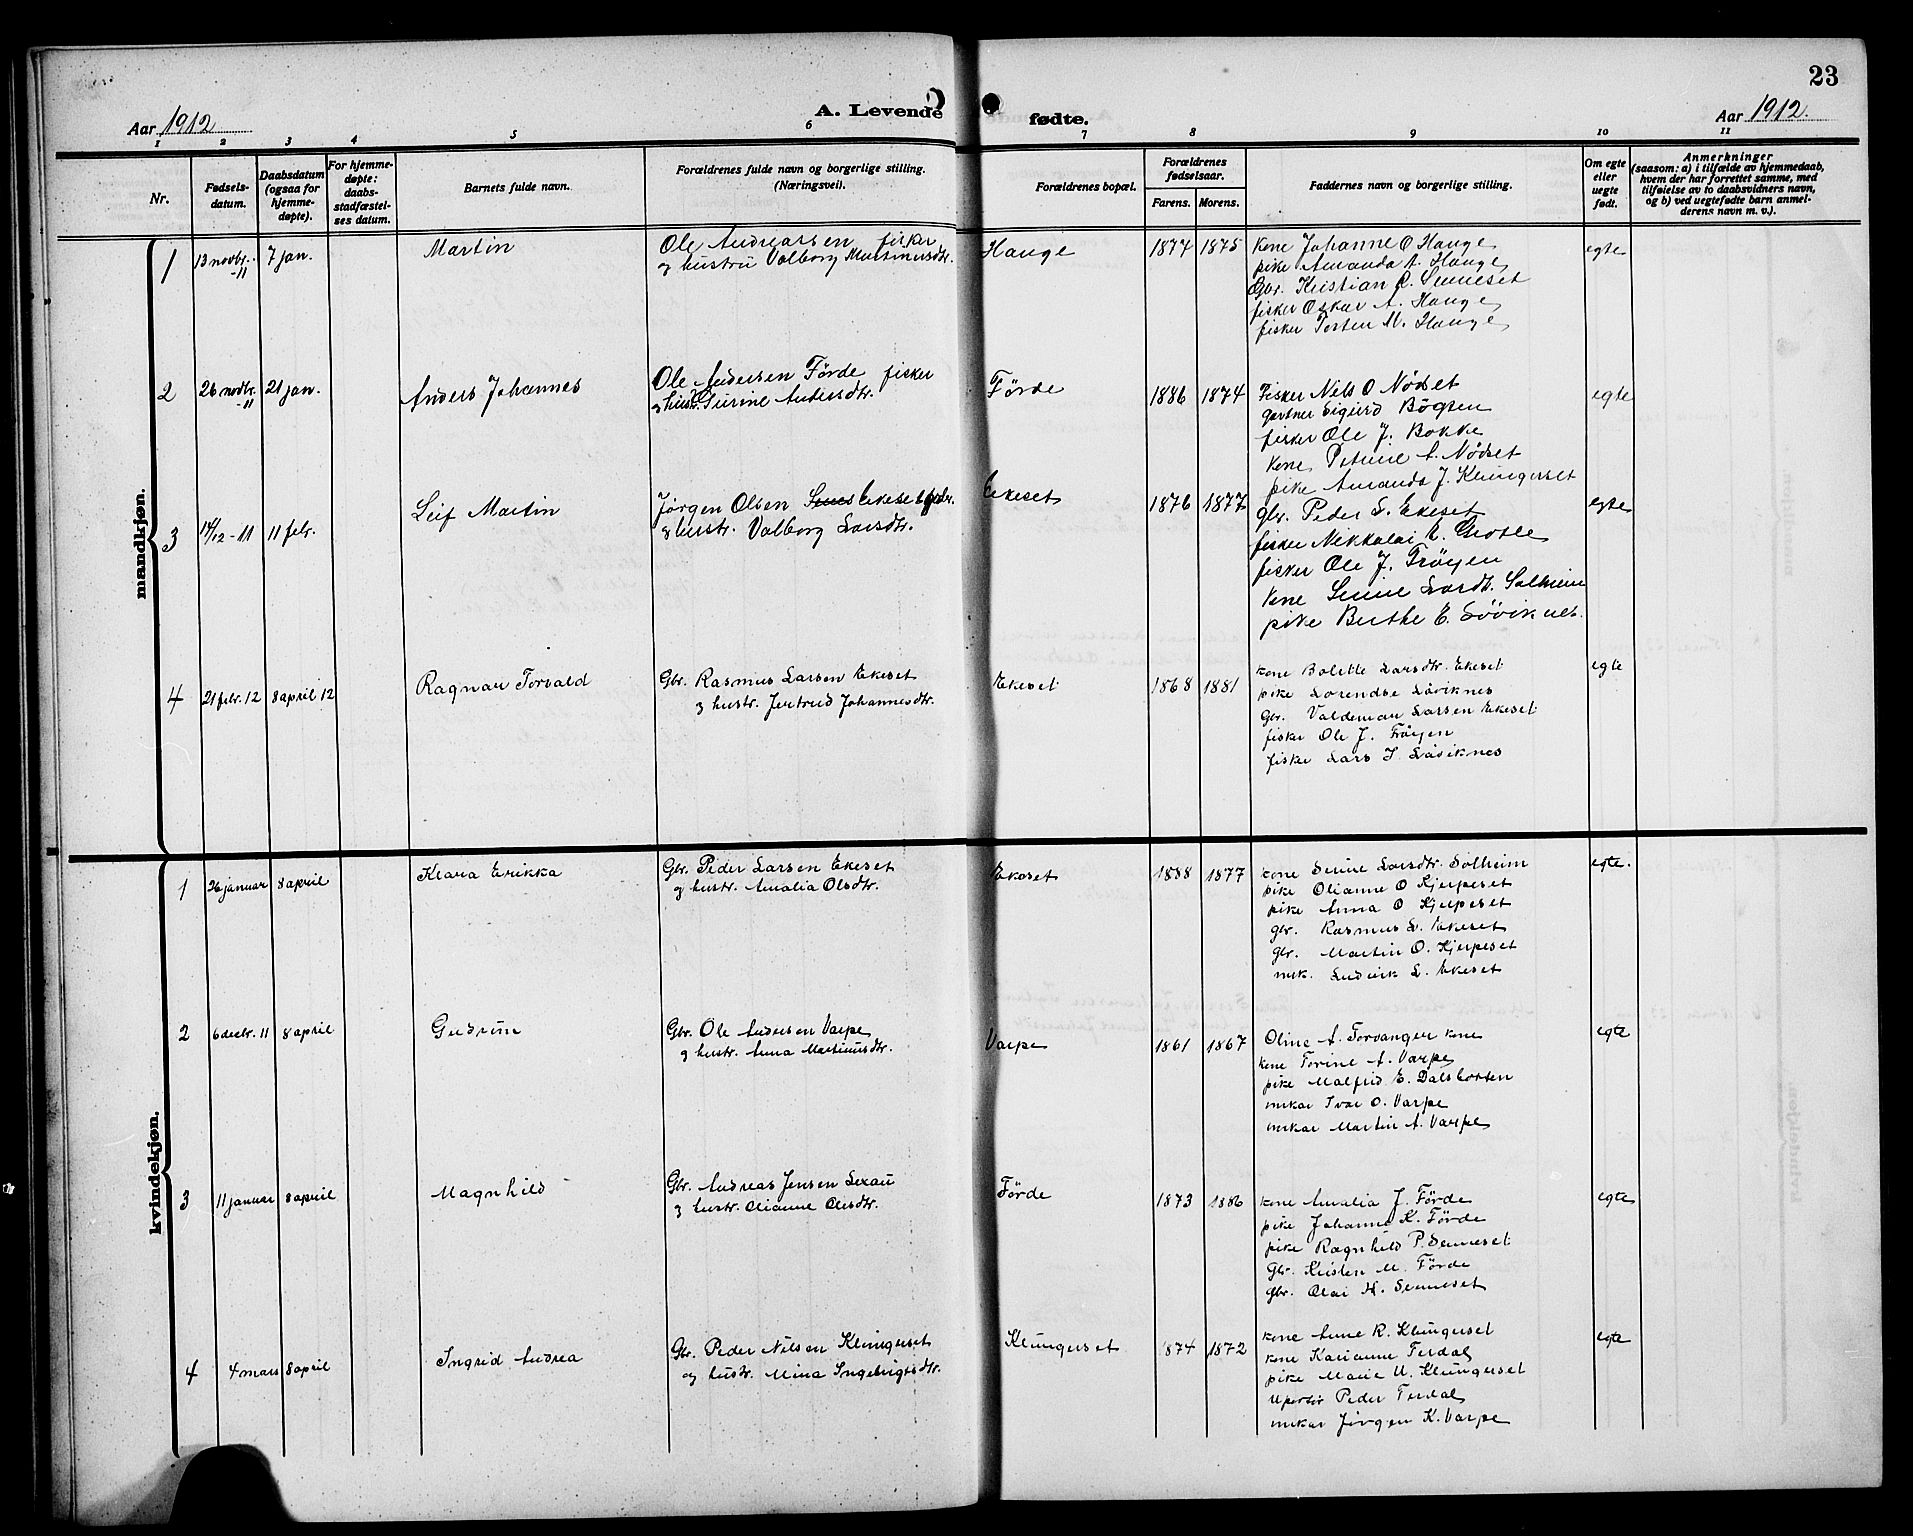 23
Aar 1912
A. Levende fødte.
Aar 1912.
1 2 3 4 5 6 7 8 9 10 11
Nr.
Fødsels-
datum.
Daabsdatum
(ogsaa for
hjemme-
døpte).
For hjemme-
døpte:
daabs-
stadfæstel-
ses datum.
Barnets fulde navn.
Forældrenes fulde navn og borgerlige stilling.
(Næringsvei).
Forældrenes bopæl.
Forældrenes
fødselsaar.
Farens. Morens.
Faddernes navn og borgerlige stilling.
Om egte
eller
uegte
født.
Anmerkninger
(saasom: a) i tilfælde av hjemmedaab,
hvem der har forrettet samme, med
tilføielse av to daabsvidners navn,
og b) ved uegtefødte barn anmel-
derens navn m. v.).
mandkjøn.
1
13 novbr.
-11
7 jan.
Martin
Ole Andreassen fisker
og hustru Valborg Martinusdtr.
Hauge
1874 1875
Kone Johanne O Hauge
pike Amanda A. Hauge
Gbr. Kristian R. Senneset
fisker Oskar A. Hauge
fisker Torten M. Hauge
egte
2
26 novbr.
-11
21 jan.
Anders Johannes
Ole Andersen Förde fisker
og hustr. Surine Andersdtr.
Förde
1886 1874
Fisker Nils O Nödset
gartner Sigurd Bögsen
fisker Ole J. Bokke
kone Petrine A. Nödset
pike Amanda J. Klungerset
egte
3
14/12 - 11
11 febr.
Leif Martin
Jørgen Olsen Ekeset gbr.
og hustr. Valborg Larsdtr.
Ekeset
1876 1877
gbr. Peder L. Ekeset
fisker Nikkolai E. Grotle
fisker Ole J. Tröyen
Kone Serine Larsdtr. Solheim
pike Berthe E. Löviknes.
egte
4
21 febr. 12
8 april 12
Ragnar Torvald
Gbr. Rasmus Larsen Ekeset
og hustr. Jertrud Johannesdtr.
Ekeset
1868 1881
kone Bolette Larsdtr. Ekeset
pike Lorendse Löviknes
Gbr. Valdemar Larsen Ekeset
fisker Ole J. Tröyen
fisker Lars I. Löviknes
egte
kvindekjøn.
1
26 januar
8 april
Klara Erikka
Gbr. Peder Larsen Ekeset
og hustr. Amalia Olsdtr.
Ekeset
1888 1877
kone Serine Larsdtr. Solheim
pike Olianne O Kjerpeset
pike Anna O Kjerpeset
gbr. Rasmus L. Ekeset
gbr. Martin O. Kjerpeset
mk. Ludvik L. Ekeset
egte.
2
6 decbr. 11
8 april
Gudrun
Gbr. Ole Andersen Varpe
og hustr. Anna Martinusdtr.
Varpe
1861 1867
Oline A. Torvanger kone
kone Torine A. Varpe
pike Malfrid E. Dalsbotten
unkar Ivar O. Varpe
unkar Martin A. Varpe
egte
3
11 januar
8 april
Magnhild
Gbr. Andreas Jensen Lexau
og hustr. Olianne Olsdtr.
Förde
1873 1886
kone Amalia J. Förde
pike Johanne K. Förde
pike Ragnhild P. Senneset
Gbr. Kristen M. Förde
gbr. Olai H. Senneset
egte
4
4 mars
8 april
Ingrid Andrea
Gbr. Peder Nilsen Klungerset
og hustr. Mina Ingebrigtsdtr.
Klungerset
1874 1872
kone Anne R. Klungerset
kone Karianne Terdal
pike Marie U. Klungerset
Peder Terdal
unkar Jörgen K. Varpe
egte